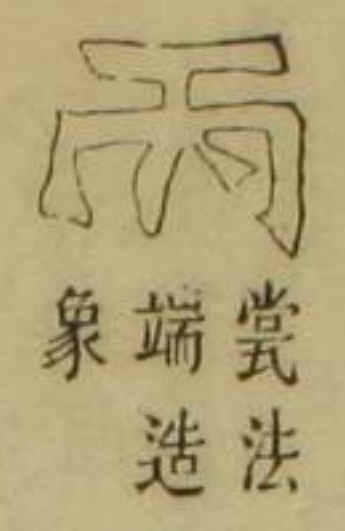 丙
瓽法
端造
象